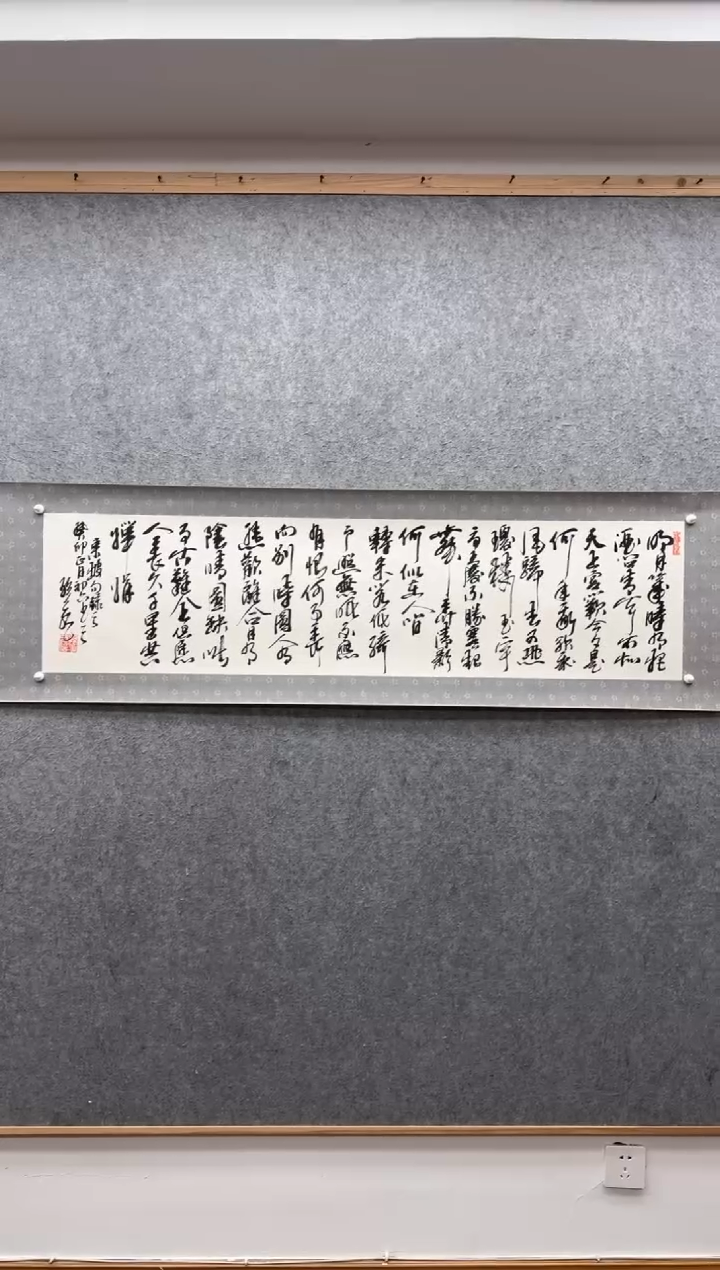 明月幾時有把
酒問青天不知
天上宮闕今夕是
何年我欲乘
風歸去又恐
瓊樓玉宇
高處不勝寒起
舞弄清影
何似在人間
轉朱閣低綺
户照無眠不應
有恨何事長
向別時圓人有
悲歡離合月有
陰晴圓缺此
事古難全但愿
人長久千里共
嬋娟
東坡句録之
癸卯正月初六